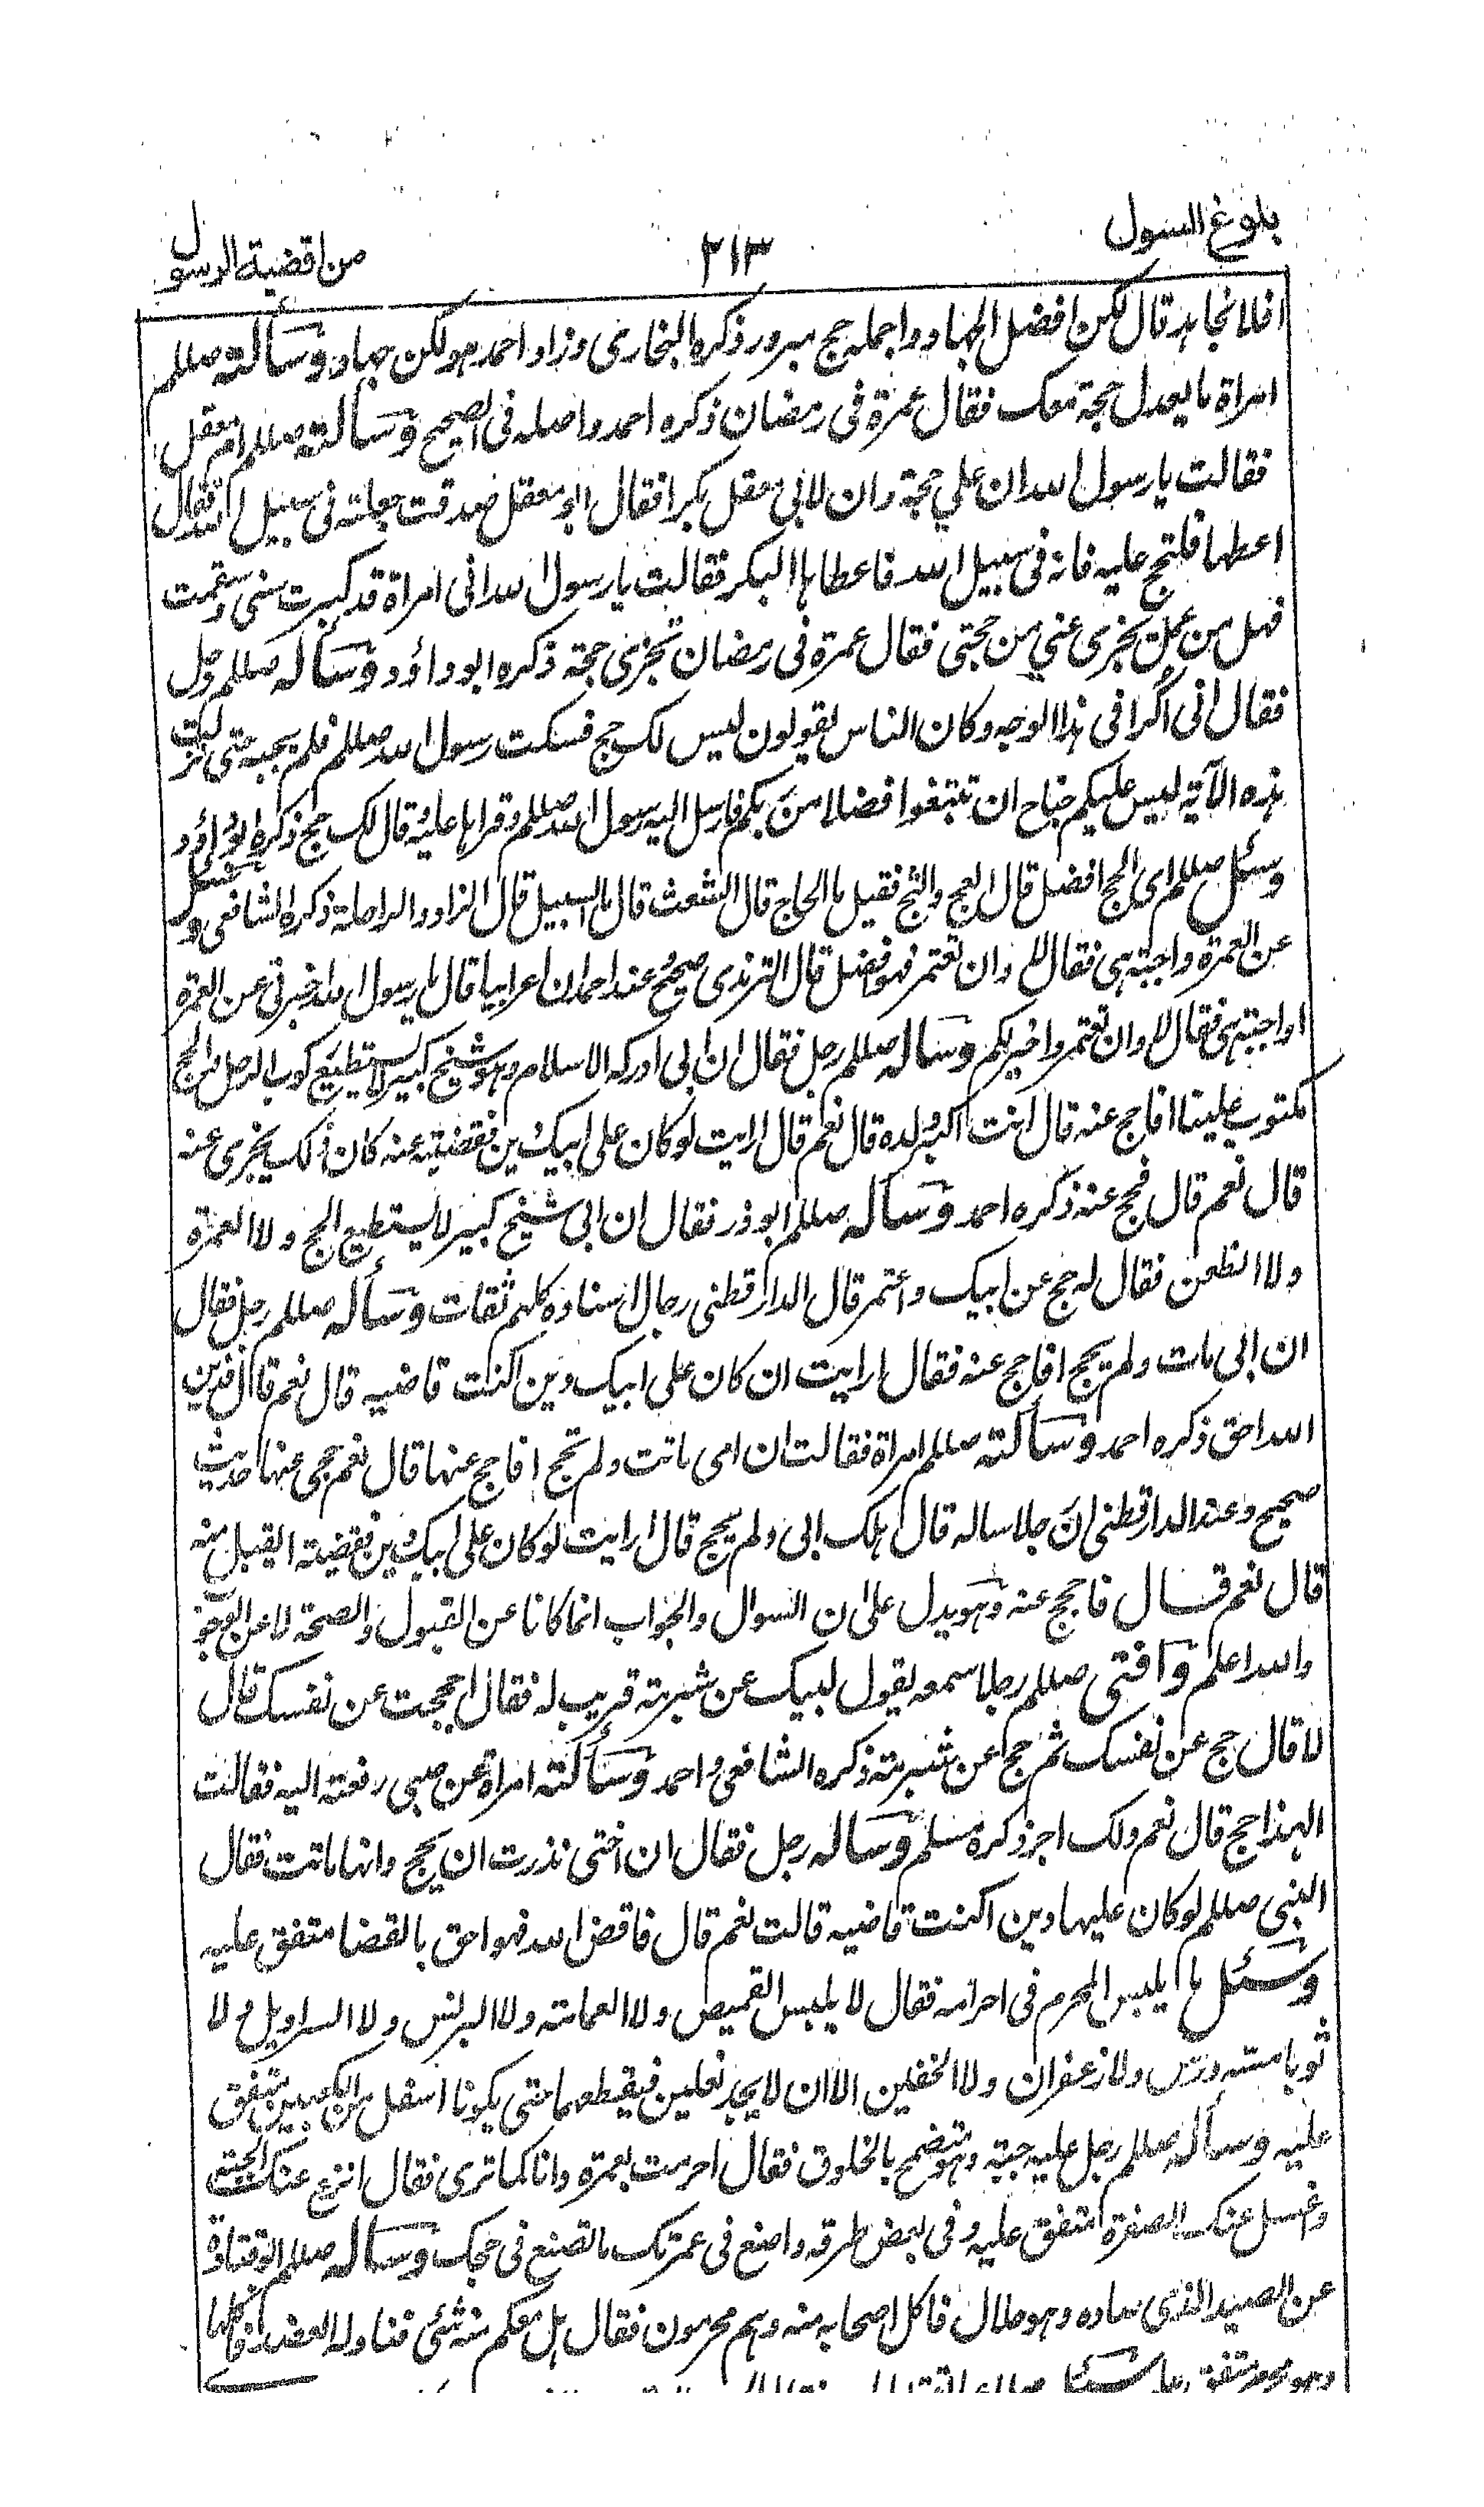 بلوغ السول
٢١٣
من اقضية الرسول
افلا نجاهد قال لكن افضل الجهاد واجمله حج مبرور ذكره البخارى وزاد احمد هو لكن جهاد وسألته صللم
امراة ما يعدل حجة معك فقال عمرة فى رمضان ذكره احمد واصله فى الصحيح وسألته صللم ام معقل
فقالت يا رسول الله ان علي حجة وان لابى معقل بكرا فقال ابو معقل صدقت جعلته فى سبيل الله فقال
اعطها فلتحج عليه فانه فى سبيل الله فاعطاها البكر فقالت يا رسول الله انى امراة قد كبرت سنى وسقمت
فهل من عمل يجزى عني من حجتى فقال عمرة فى رمضان تجزى حجة ذكره ابو داؤد وسأله صللم رجل
فقال انى اكرا فى هذا الوجه وكان الناس يقولون ليس لك حج فسكت رسول الله صللم فلم يجبه حتى نزلت
هذه الآية ليس عليكم جناح ان تبتغوا فضلا من ربكم فارسل اليه رسول الله صللم وقراها عليه قال لك حج ذكره ابو داؤد
وسئل صللم اى الحج افضل قال العج والثج فقيل ما الحاج قال الشعث قال ما السبيل قال الزاد والراحلة ذكره الشافعى وسئل
عن العمرة واجبة هى فقال لا وان تعتمر فهو افضل قال الترمذى صحيح وعند احمد ان اعرابيا قال يا رسول الله اخبرنى عن العمرة
اواجبة هى فقال لا وان تعتمروا خير لكم وسأله صللم رجل فقال ان ابى ادركه الاسلام وهو شيخ كبير لا يستطيع ركوب الرحل والحج
مكتوب علينا افاحج عنه قال انت اكبر ولده قال نعم قال ارايت لو كان على ابيك دين فقضيته عنه كان ذلك يجزى عنه
قال نعم قال فحج عنه ذكره احمد وسأله صللم ابو ذر فقال ان ابى شيخ كبير لا يستطيع الحج ولا العمرة
ولا الظعن فقال له حج عن ابيك واعتمر قال الدارقطنى رجال اسناده كلهم ثقات وسأله صللم رجل فقال
ان ابى مات ولم يحج افاحج عنه فقال ارايت ان كان على ابيك دين اكنت قاضيه قال نعم قال فدين
الله احق ذكره احمد وسألته صللم امراة فقالت ان امى ماتت ولم تحج افاحج عنها قال نعم حجى عنها حديث
صحيح وعند الدارقطنى ان رجلا ساله قال هلك ابى ولم يحج قال ارايت لو كان على ابيك دين فقضيته ايقبل منه
قال نعم قال فاحجج عنه وهو يدل على ان السوال والجواب انما كانا عن القبول والصحة لا عن الوجوب
والله اعلم وافتى صللم رجلا سمعه يقول لبيك عن شبرمة قريب له فقال احججت عن نفسك قال
لا قال حج عن نفسك ثم حج عن شبرمة ذكره الشافعى واحمد وسألته امراة عن صبى رفعته اليه فقالت
الهذا حج قال نعم ولك اجر ذكره مسلم وسأله رجل فقال ان اختى نذرت ان تحج وانها ماتت فقال
النبى صللم لو كان عليها دين اكنت قاضيه قالت نعم قال فاقض الله فهو احق بالقضا متفق عليه
وسئل ما يلبس المحرم فى احرامه فقال لا يلبس القميص ولا العمامة ولا البرنس ولا السراويل ولا
ثوبا مسه ورس ولا زعفران ولا الخفين الا ان لا يجد نعلين فيقطعهما حتى يكونا اسفل من الكعبين متفق
عليه وسأله صللم رجل عليه جبة وهو متضمخ بالخلوق فقال احرمت بعمرة وانا كما ترى فقال انزع عنك الجبة
واغسل عنك الصفرة متفق عليه وفى بعض طرقه واصنع فى عمرتك ما تصنع فى حجك وسأله صللم ابو قتادة
عن الصيد الذى صاده وهو حلال فاكل اصحابه منه وهم محرمون فقال هل معكم منه شئى فناوله العضد فاكلها
وهو محرم متفق عليه وسئل صللم